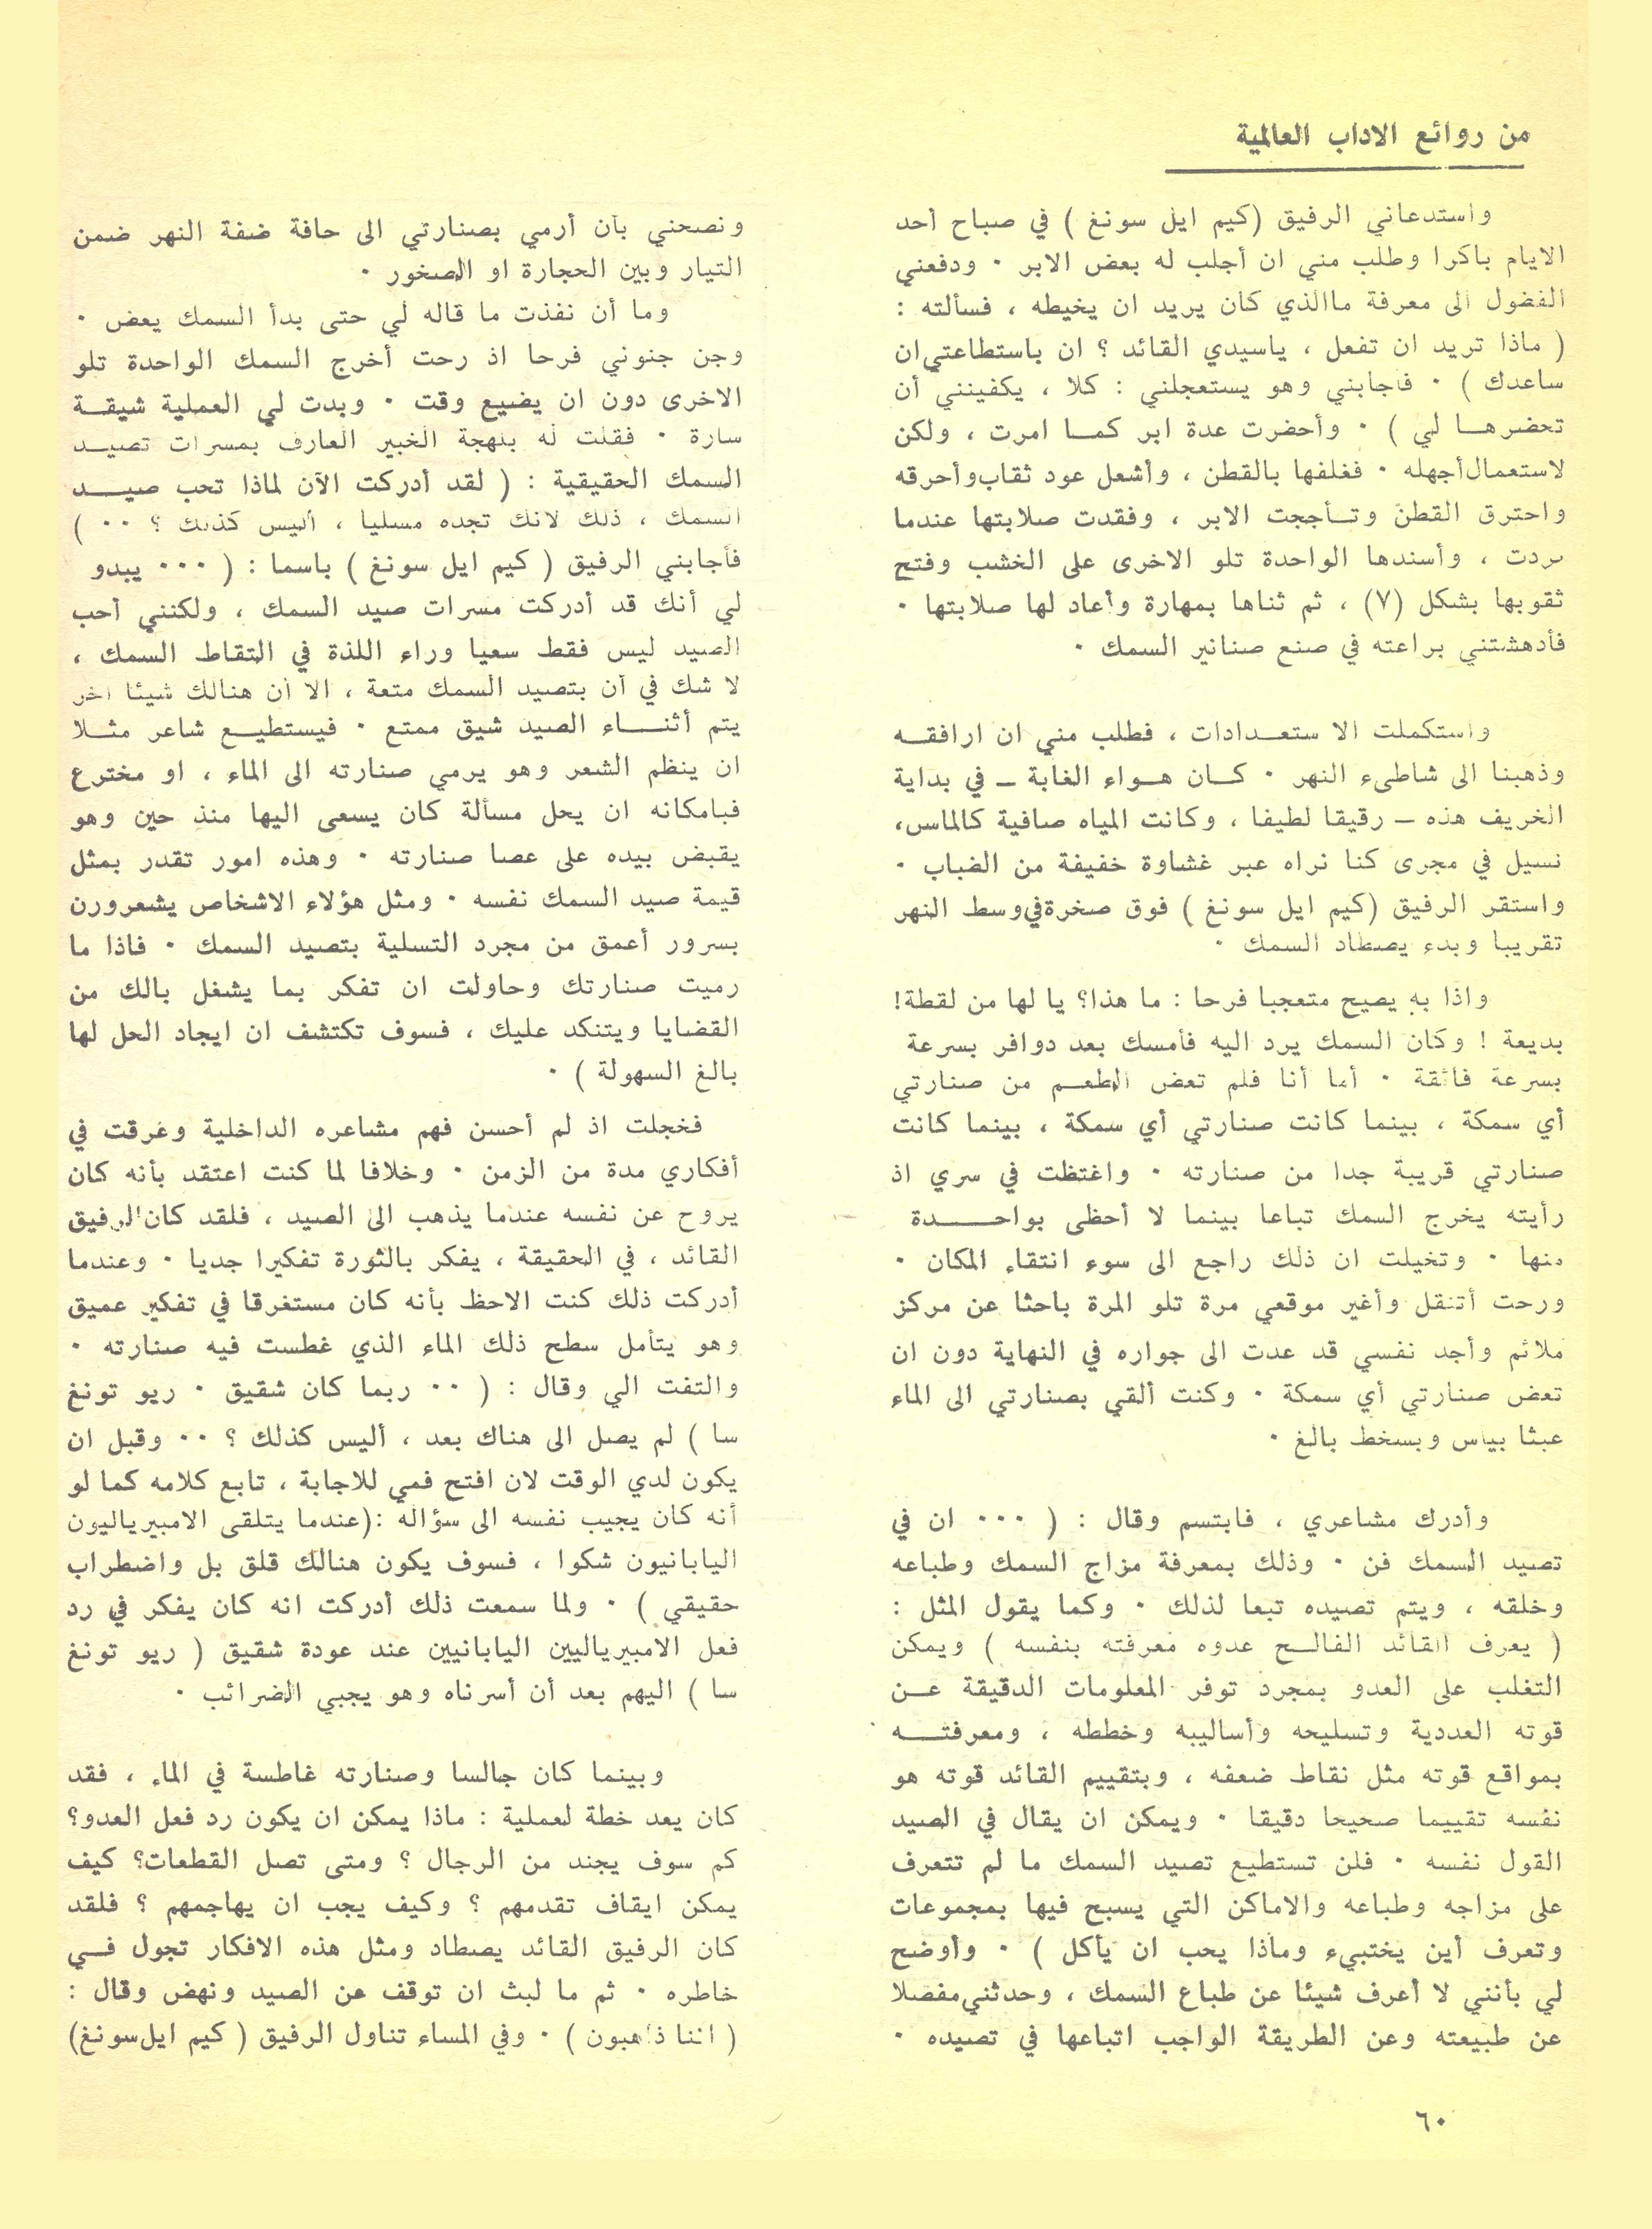 من روائع الاداب العالمية
واستدعاني الرفيق (كيم ايل سونغ) في صباح أحد
الايام باكرا وطلب مني ان أجلب له بعض الابر ٠ ودفعني
الفضول الى معرفة ماالذي كان يريد ان يخيطه ، فسألته :
( ماذا تريد ان تفعل ، ياسيدي القائد ؟ ان باستطاعتي ان
ساعدك ) ٠ فأجابني وهو يستعجلني : كلا ، يكفينني أن
تحضرها لي ) ٠ وأحضرت عدة ابر كما امرت ، ولكن
لاستعمال أجهله ٠ فغلفها بالقطن ، وأشعل عود ثقاب وأحرقه
واحترق القطن وتأججت الابر ، وفقدت صلابتها عندما
بردت ، وأسندها الواحدة تلو الاخرى على الخشب وفتح
ثقوبها بشكل (٧) ، ثم ثناها بمهارة وأعاد لها صلابتها ٠
فأدهشتني براعته في صنع صنانير السمك ٠
واستكملت الا ستعدادات ، فطلب مني ان ارافقه
وذهبنا الى شاطىء النهر ٠ كان هواء الغابة ـ في بداية
الخريف هذه ـ رقيقا لطيفا ، وكانت المياه صافية كالماس،
تسيل في مجرى كنا نراه عبر غشاوة خفيفة من الضباب ٠
واستقر الرفيق (كيم ايل سونغ) فوق صخرة في وسط النهر
تقريبا وبدء يصطاد السمك ٠
واذا به يصيح متعجبا فرحا : ما هذا؟ يا لها من لقطة!
بديعة ! وكان السمك يرد اليه فأمسك بعد دوافر بسرعة
بسرعة فائقة ٠ أما أنا فلم تعض الطعم من صنارتي
أي سمكة ، بينما كانت صنارتي أي سمكة ، بينما كانت
صنارتي قريبة جدا من صنارته ٠ واغتظت في سري اذ
رأيته يخرج السمك تباعا بينما لا أحظى بواحدة
منها ٠ وتخيلت ان ذلك راجع الى سوء انتقاء المكان ٠
ورحت أتنقل وأغير موقعي مرة تلو المرة باحثا عن مركز
ملائم وأجد نفسي قد عدت الى جواره في النهاية دون ان
تعض صنارتي أي سمكة ٠ وكنت ألقي بصنارتي الى الماء
عبثا بيأس وبسخط بالغ ٠
وأدرك مشاعري ، فابتسم وقال : ( ٠٠٠ ان في
تصيد السمك فن ٠ وذلك بمعرفة مزاج السمك وطباعه
وخلقه ، ويتم تصيده تبعا لذلك ٠ وكما يقول المثل :
( يعرف القائد الفالح عدوه معرفته بنفسه ) ويمكن
التغلب على العدو بمجرد توفر المعلومات الدقيقة عن
قوته العددية وتسليحه وأساليبه وخططه ، ومعرفته
بمواقع قوته مثل نقاط ضعفه ، وبتقييم القائد قوته هو
نفسه تقييما صحيحا دقيقا ٠ ويمكن ان يقال في الصيد
القول نفسه ٠ فلن تستطيع تصيد السمك ما لم تتعرف
على مزاجه وطباعه والاماكن التي يسبح فيها بمجموعات
وتعرف أين يختبيء وماذا يحب ان يأكل ) ٠ وأوضح
لي بأنني لا أعرف شيئا عن طباع السمك ، وحدثني مفصلا
عن طبيعته وعن الطريقة الواجب اتباعها في تصيده ٠
ونصحني بأن أرمي بصنارتي الى حافة ضفة النهر ضمن
التيار وبين الحجارة او الصخور ٠
وما أن نفذت ما قاله لي حتى بدأ السمك يعض ٠
وجن جنوني فرحا اذ رحت أخرج السمك الواحدة تلو
الاخرى دون ان يضيع وقت ٠ وبدت لي العملية شيقة
سارة ٠ فقلت له بلهجة الخبير العارف بمسرات تصيد
السمك الحقيقية : ( لقد أدركت الآن لماذا تحب صيد
السمك ، ذلك لانك تجده مسليا ، أليس كذلك ؟ ٠٠ )
فأجابني الرفيق ( كيم ايل سونغ ) باسما : ( ٠٠٠ يبدو
لي أنك قد أدركت مسرات صيد السمك ، ولكنني أحب
الصيد ليس فقط سعيا وراء اللذة في التقاط السمك ،
لا شك في أن بتصيد السمك متعة ، الا أن هنالك شيئا آخر
يتم أثناء الصيد شيق ممتع ٠ فيستطيع شاعر مثلا
ان ينظم الشعر وهو يرمي صنارته الى الماء ، او مخترع
فبامكانه ان يحل مسألة كان يسعى اليها منذ حين وهو
يقبض بيده على عصا صنارته ٠ وهذه امور تقدر بمثل
قيمة صيد السمك نفسه ٠ ومثل هؤلاء الاشخاص يشعرورن
بسرور أعمق من مجرد التسلية بتصيد السمك ٠ فاذا ما
رميت صنارتك وحاولت ان تفكر بما يشغل بالك من
القضايا ويتنكد عليك ، فسوف تكتشف ان ايجاد الحل لها
بالغ السهولة ) ٠
فخجلت اذ لم أحسن فهم مشاعره الداخلية وغرقت في
أفكاري مدة من الزمن ٠ وخلافا لما كنت اعتقد بأنه كان
يروح عن نفسه عندما يذهب الى الصيد ، فلقد كان الرفيق
القائد ، في الحقيقة ، يفكر بالثورة تفكيرا جديا ٠ وعندما
أدركت ذلك كنت الاحظ بأنه كان مستغرقا في تفكير عميق
وهو يتأمل سطح ذلك الماء الذي غطست فيه صنارته ٠
والتفت الي وقال : ( ٠٠ ربما كان شقيق ٠ ريو تونغ
سا ) لم يصل الى هناك بعد ، أليس كذلك ؟ ٠٠ وقبل ان
يكون لدي الوقت لان افتح فمي للاجابة ، تابع كلامه كما لو
أنه كان يجيب نفسه الى سؤاله :(عندما يتلقى الامبيرياليون
اليابانيون شكوا ، فسوف يكون هنالك قلق بل واضطراب
حقيقي ) ٠ ولما سمعت ذلك أدركت انه كان يفكر في رد
فعل الامبيرياليين اليابانيين عند عودة شقيق ( ريو تونغ
سا ) اليهم بعد أن أسرناه وهو يجبي الضرائب ٠
وبينما كان جالسا وصنارته غاطسة في الماء ، فقد
كان يعد خطة لعملية : ماذا يمكن ان يكون رد فعل العدو؟
كم سوف يجند من الرجال ؟ ومتى تصل القطعات؟ كيف
يمكن ايقاف تقدمهم ؟ وكيف يجب ان يهاجمهم ؟ فلقد
كان الرفيق القائد يصطاد ومثل هذه الافكار تجول في
خاطره ٠ ثم ما لبث ان توقف عن الصيد ونهض وقال :
( اننا ذاهبون ) ٠ وفي المساء تناول الرفيق ( كيم ايل سونغ)
٦٠